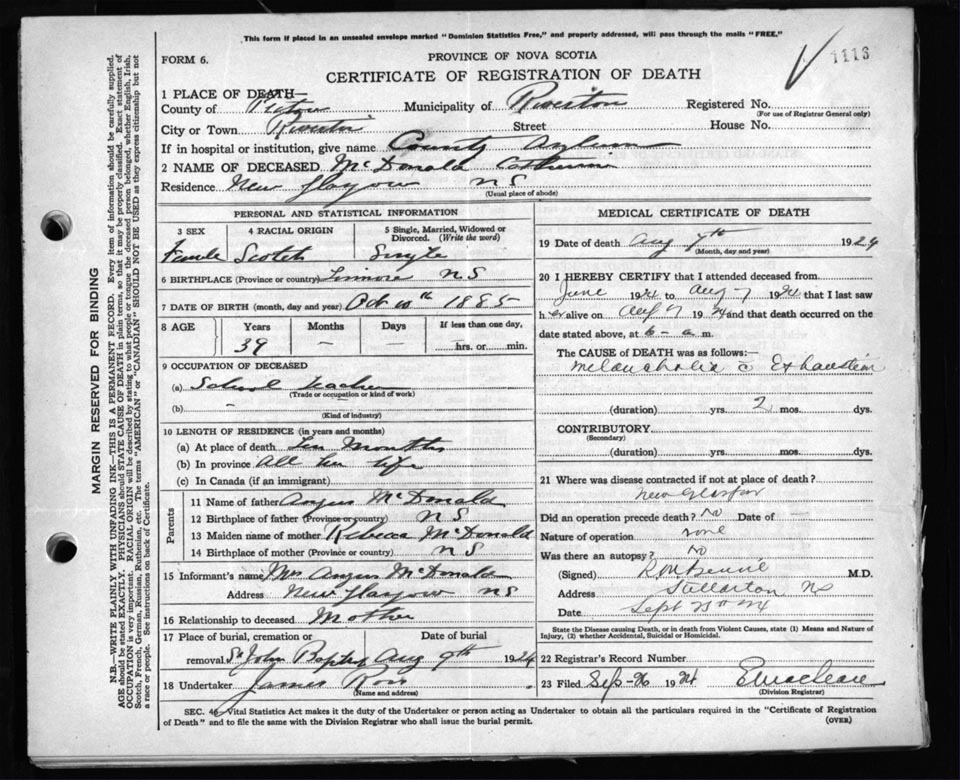 This form if placed in an unsealed envelope marked "Dominion Statistics Free," and properly addressed, will pass through the mails "FREE."
1113
FORM 6.
PROVINCE OF NOVA SCOTIA
CERTIFICATE OF REGISTRATION OF DEATH
1 PLACE OF DEATH—
County of Pictou Municipality of Riverton Registered No.
(For use of Registrar General only)
City or Town Riverton Street House No.
If in hospital or institution, give name County Asylum
2 NAME OF DECEASED McDonald Catherine
Residence New Glasgow N S
(Usual place of abode)
PERSONAL AND STATISTICAL INFORMATION
3 SEX 4 RACIAL ORIGIN 5 Single, Married, Widowed or Divorced. (Write the word)
Female Scotch Single
6 BIRTHPLACE (Province or country) N S
7 DATE OF BIRTH (month, day and year) Oct 10th 1885
8 AGE Years Months Days If less than one day,
39 — — hrs. or min.
9 OCCUPATION OF DECEASED
(a) School Teacher
(Trade or occupation or kind of work)
(b) —
(Kind of industry)
10 LENGTH OF RESIDENCE (in years and months)
(a) At place of death Months
(b) In province All her life
(c) In Canada (if an immigrant)
Parents
11 Name of father Angus McDonald
12 Birthplace of father (Province or country) N S
13 Maiden name of mother Rebecca McDonald
14 Birthplace of mother (Province or country) N S
15 Informant's name Mrs Angus McDonald
Address New Glasgow N S
16 Relationship to deceased Mother
17 Place of burial, cremation or Date of burial
removal St John Baptist Aug 9th 1924
18 Undertaker James Ross
(Name and address)
MEDICAL CERTIFICATE OF DEATH
19 Date of death Aug 7th 1924
(Month, day and year)
20 I HEREBY CERTIFY that I attended deceased from
June 1924 to Aug 7 1924 that I last saw
her alive on Aug 7 1924 and that death occurred on the
date stated above, at 6- a m.
The CAUSE OF DEATH was as follows:—
Melancholia c̄ Exhaustion
(duration) yrs. 2 mos. dys.
CONTRIBUTORY
(Secondary)
(duration) yrs. mos. dys.
21 Where was disease contracted if not at place of death?
New Glasgow
Did an operation precede death? No Date of —
Nature of operation none
Was there an autopsy? No
(Signed) M.D.
Address Stellarton NS
Date Sept 24
State the Disease causing Death, or in death from Violent Causes, state (1) Means and Nature of Injury, (2) whether Accidental, Suicidal or Homicidal.
22 Registrar's Record Number
23 Filed Sep 26 1924 E Maclean
(Division Registrar)
SEC. 46, Vital Statistics Act makes it the duty of the Undertaker or person acting as Undertaker to obtain all the particulars required in the "Certificate of Registration
of Death" and to file the same with the Division Registrar who shall issue the burial permit.
(OVER)
MARGIN RESERVED FOR BINDING
N.B.—WRITE PLAINLY WITH UNFADING INK—THIS IS A PERMANENT RECORD. Every item of information should be carefully supplied.
AGE should be stated EXACTLY. PHYSICIANS should STATE CAUSE OF DEATH in plain terms, so that it may be properly classified. Exact statement of
OCCUPATION is very important. RACIAL ORIGIN will be described by stating to what people or tongue the deceased person belonged, whether English, Irish,
Scotch, French, German, Russian, Ruthenian, etc. The terms "AMERICAN" or "CANADIAN" SHOULD NOT BE USED as they express citizenship but not
a race or people. See instructions on back of Certificate.